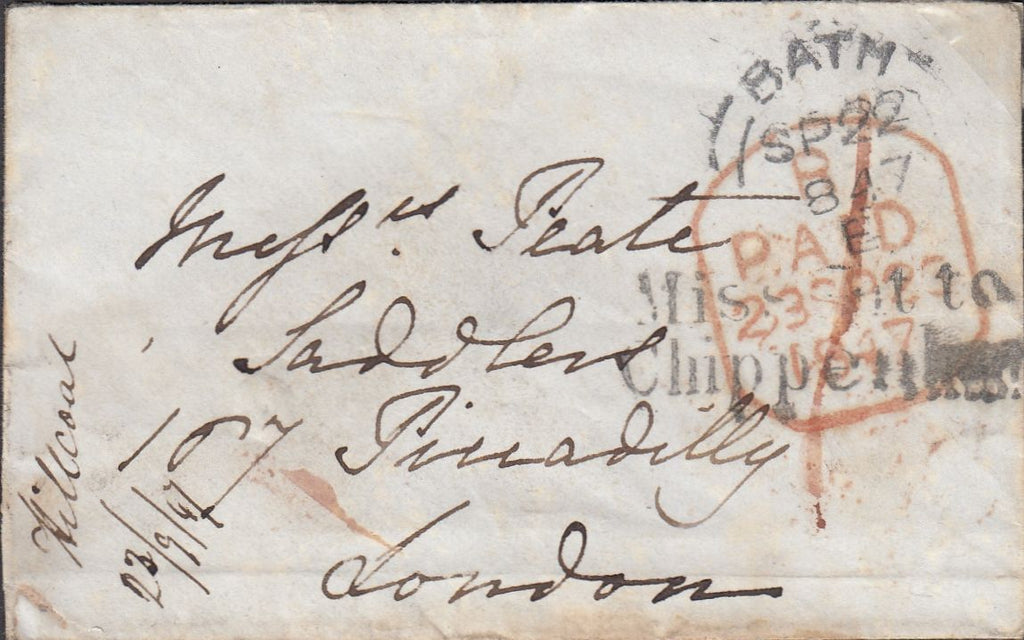 BATH
SP 22
1847
E
PAID
23 SP 23
1847
Miss-sent to
Chippen
Mess.rs Peate
Saddlers
187 Piccadilly
London
23/9/47